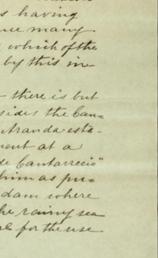 s having
nce many
which of the
by this in-
there is but
sides the Can-
tranda esta-
ment at a
de Cantarrecio"
him as pu-
dam where
he rainy sea
for the use